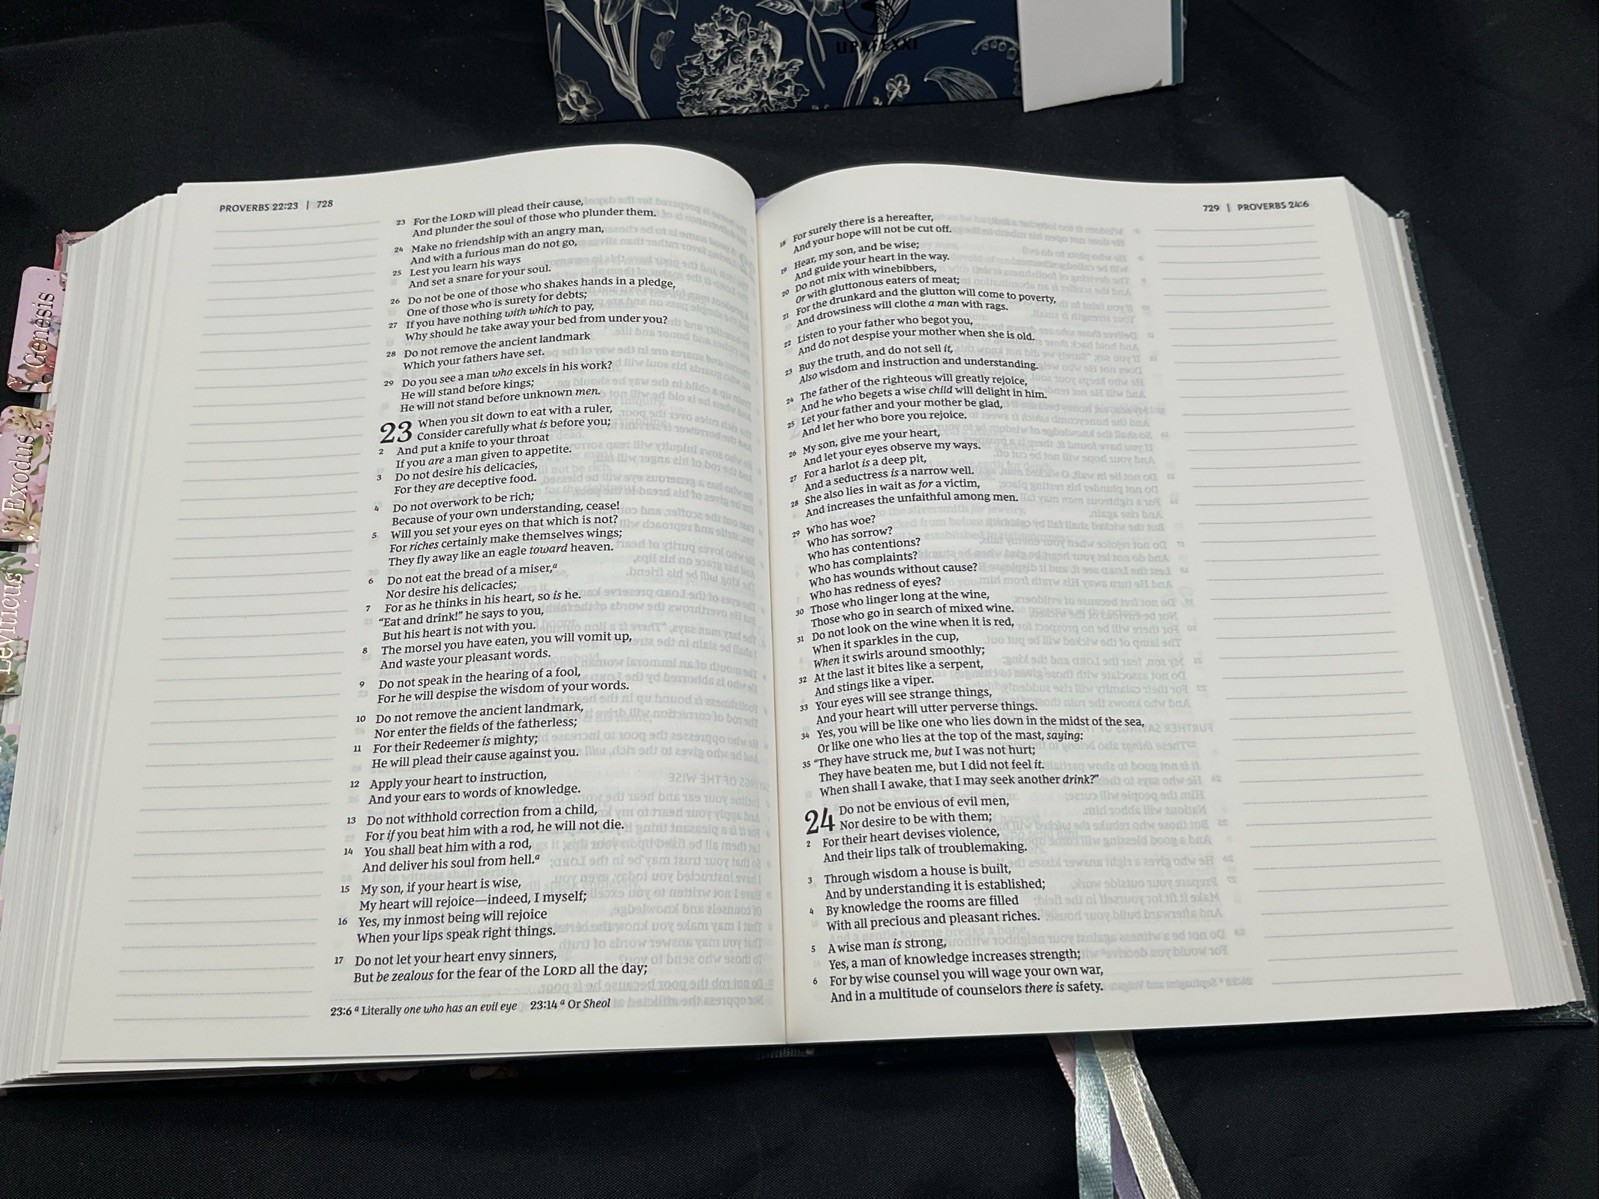 UPAFEXXI
Genesis
Exodus
Leviticus
PROVERBS 22:23 | 728
23 For the LORD will plead their cause,
And plunder the soul of those who plunder them.
24 Make no friendship with an angry man,
And with a furious man do not go,
25 Lest you learn his ways
And set a snare for your soul.
26 Do not be one of those who shakes hands in a pledge,
One of those who is surety for debts;
27 If you have nothing with which to pay,
Why should he take away your bed from under you?
28 Do not remove the ancient landmark
Which your fathers have set.
29 Do you see a man who excels in his work?
He will stand before kings;
He will not stand before unknown men.
23 When you sit down to eat with a ruler,
Consider carefully what is before you;
2 And put a knife to your throat
If you are a man given to appetite.
3 Do not desire his delicacies,
For they are deceptive food.
4 Do not overwork to be rich;
Because of your own understanding, cease!
5 Will you set your eyes on that which is not?
For riches certainly make themselves wings;
They fly away like an eagle toward heaven.
6 Do not eat the bread of a miser,a
Nor desire his delicacies;
7 For as he thinks in his heart, so is he.
“Eat and drink!” he says to you,
But his heart is not with you.
8 The morsel you have eaten, you will vomit up,
And waste your pleasant words.
9 Do not speak in the hearing of a fool,
For he will despise the wisdom of your words.
10 Do not remove the ancient landmark,
Nor enter the fields of the fatherless;
11 For their Redeemer is mighty;
He will plead their cause against you.
12 Apply your heart to instruction,
And your ears to words of knowledge.
13 Do not withhold correction from a child,
For if you beat him with a rod, he will not die.
14 You shall beat him with a rod,
And deliver his soul from hell.a
15 My son, if your heart is wise,
My heart will rejoice—indeed, I myself;
16 Yes, my inmost being will rejoice
When your lips speak right things.
17 Do not let your heart envy sinners,
But be zealous for the fear of the LORD all the day;
23:6 a Literally one who has an evil eye 23:14 a Or Sheol
729 | PROVERBS 24:6
18 For surely there is a hereafter,
And your hope will not be cut off.
19 Hear, my son, and be wise;
And guide your heart in the way.
20 Do not mix with winebibbers,
Or with gluttonous eaters of meat;
21 For the drunkard and the glutton will come to poverty,
And drowsiness will clothe a man with rags.
22 Listen to your father who begot you,
And do not despise your mother when she is old.
23 Buy the truth, and do not sell it,
Also wisdom and instruction and understanding.
24 The father of the righteous will greatly rejoice,
And he who begets a wise child will delight in him.
25 Let your father and your mother be glad,
And let her who bore you rejoice.
26 My son, give me your heart,
And let your eyes observe my ways.
27 For a harlot is a deep pit,
And a seductress is a narrow well.
28 She also lies in wait as for a victim,
And increases the unfaithful among men.
29 Who has woe?
Who has sorrow?
Who has contentions?
Who has complaints?
Who has wounds without cause?
Who has redness of eyes?
30 Those who linger long at the wine,
Those who go in search of mixed wine.
31 Do not look on the wine when it is red,
When it sparkles in the cup,
When it swirls around smoothly;
32 At the last it bites like a serpent,
And stings like a viper.
33 Your eyes will see strange things,
And your heart will utter perverse things.
34 Yes, you will be like one who lies down in the midst of the sea,
Or like one who lies at the top of the mast, saying:
35 “They have struck me, but I was not hurt;
They have beaten me, but I did not feel it.
When shall I awake, that I may seek another drink?”
24 Do not be envious of evil men,
Nor desire to be with them;
2 For their heart devises violence,
And their lips talk of troublemaking.
3 Through wisdom a house is built,
And by understanding it is established;
4 By knowledge the rooms are filled
With all precious and pleasant riches.
5 A wise man is strong,
Yes, a man of knowledge increases strength;
6 For by wise counsel you will wage your own war,
And in a multitude of counselors there is safety.